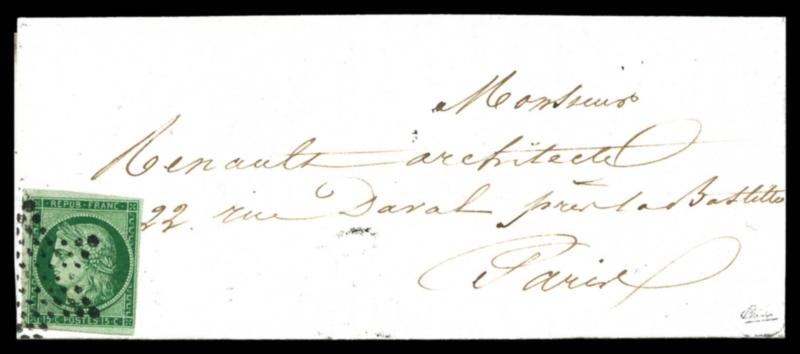 Monsieur
Renault architecte
22. rue Daval près la Bastille
Paris
REPUB. FRANC.
15 C. POSTES 15 C.